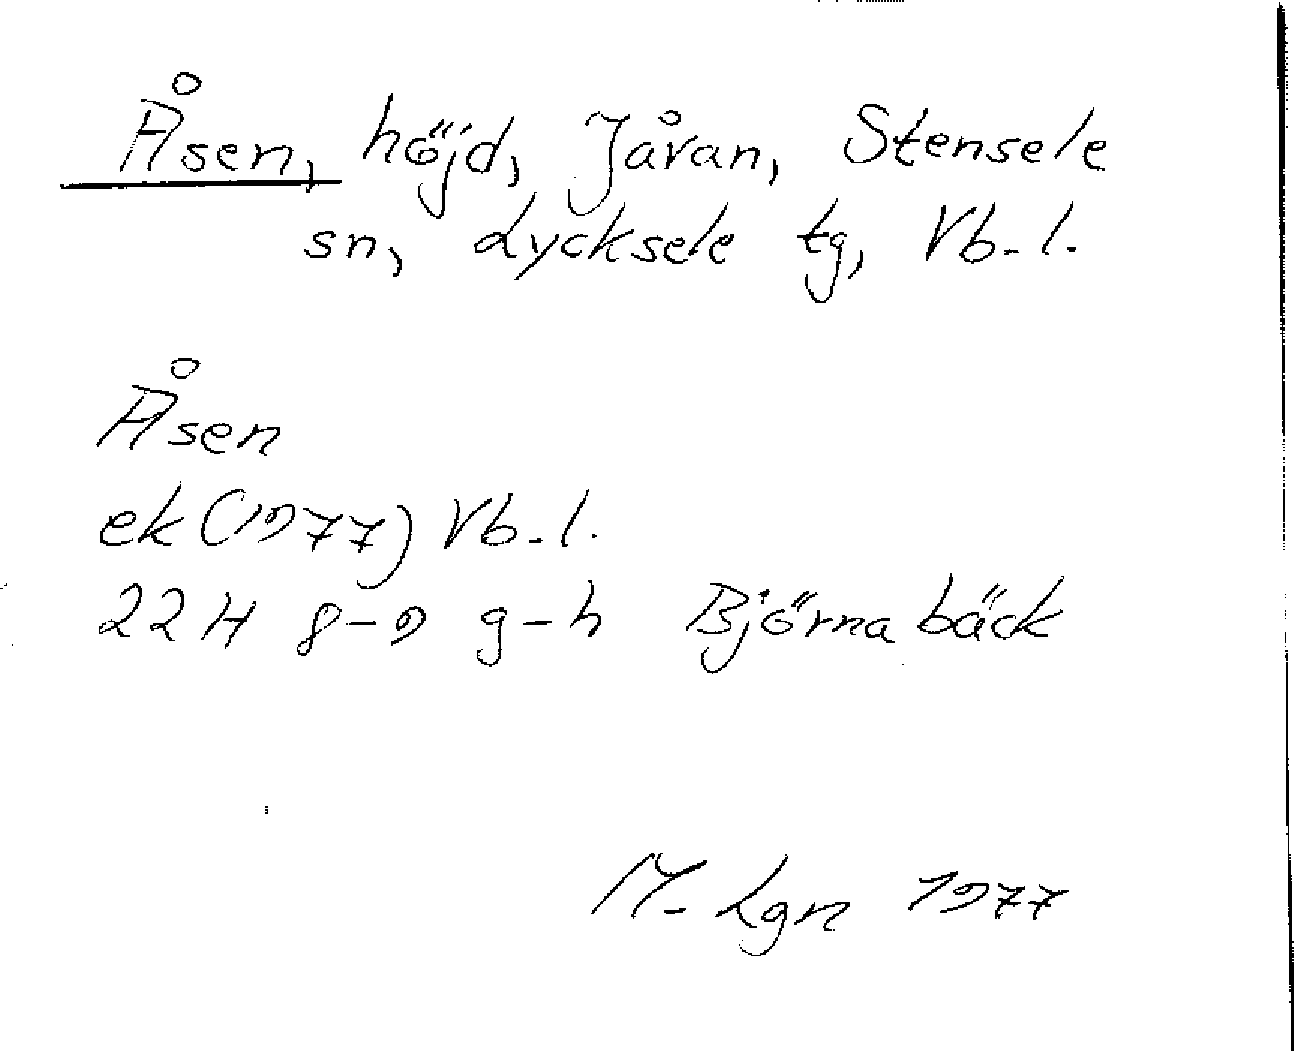 Åsen, höjd, Jåvan, Stensele
sn, Lycksele tg, Vb. l.
Åsen
ek (1977) Vb. l.
22 H 8-9 g-h Björnabäck
M. Lgn 1977